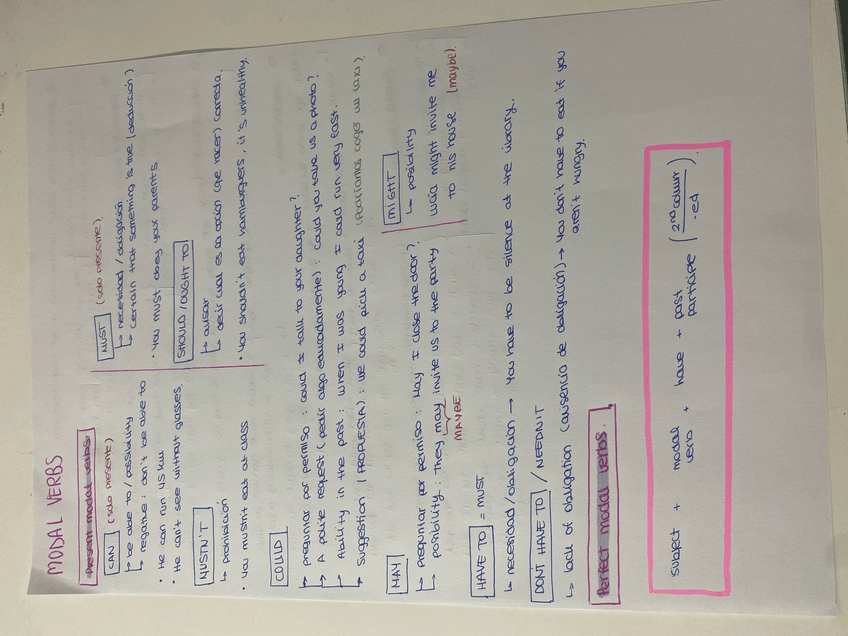 MODAL VERBS
Present modal verbs.
CAN (solo presente)
↳ be able to / possibility
↳ negative: don't be able to
• He can run 45 km
• He can't see without glasses.
MUSTN'T
↳ prohibición
• You mustn't eat at class
MUST (solo presente)
↳ necesidad / obligación
↳ certain that something is true (deducción)
• You must obey your parents
SHOULD / OUGHT TO
↳ avisar
↳ decir cual es la acción (que hacer) correcta.
• You shouldn't eat hamburguers, it is unhealthy.
COULD
↳ preguntar por permiso: could I talk to your daughter?
↳ A polite request (pedir algo educadamente): Could you take us a photo?
↳ Ability in the past: when I was young I could run very fast.
↳ Suggestion (PROPUESTA): we could pick a taxi (podríamos coger un taxi).
MAY
↳ preguntar por permiso: May I close the door?
posibility: They may invite us to the party
MAYBE
MIGHT
↳ posibility
might invite me
to his house (maybe).
HAVE TO = MUST
↳ necesidad/obligación → You have to be silence at the library.
DON'T HAVE TO / NEEDN'T
↳ lack of obligation (ausencia de obligación) → You don't have to eat if you
aren't hungry.
Perfect modal verbs.
subject + modal verb + have + past participle (2nd column / -ed).